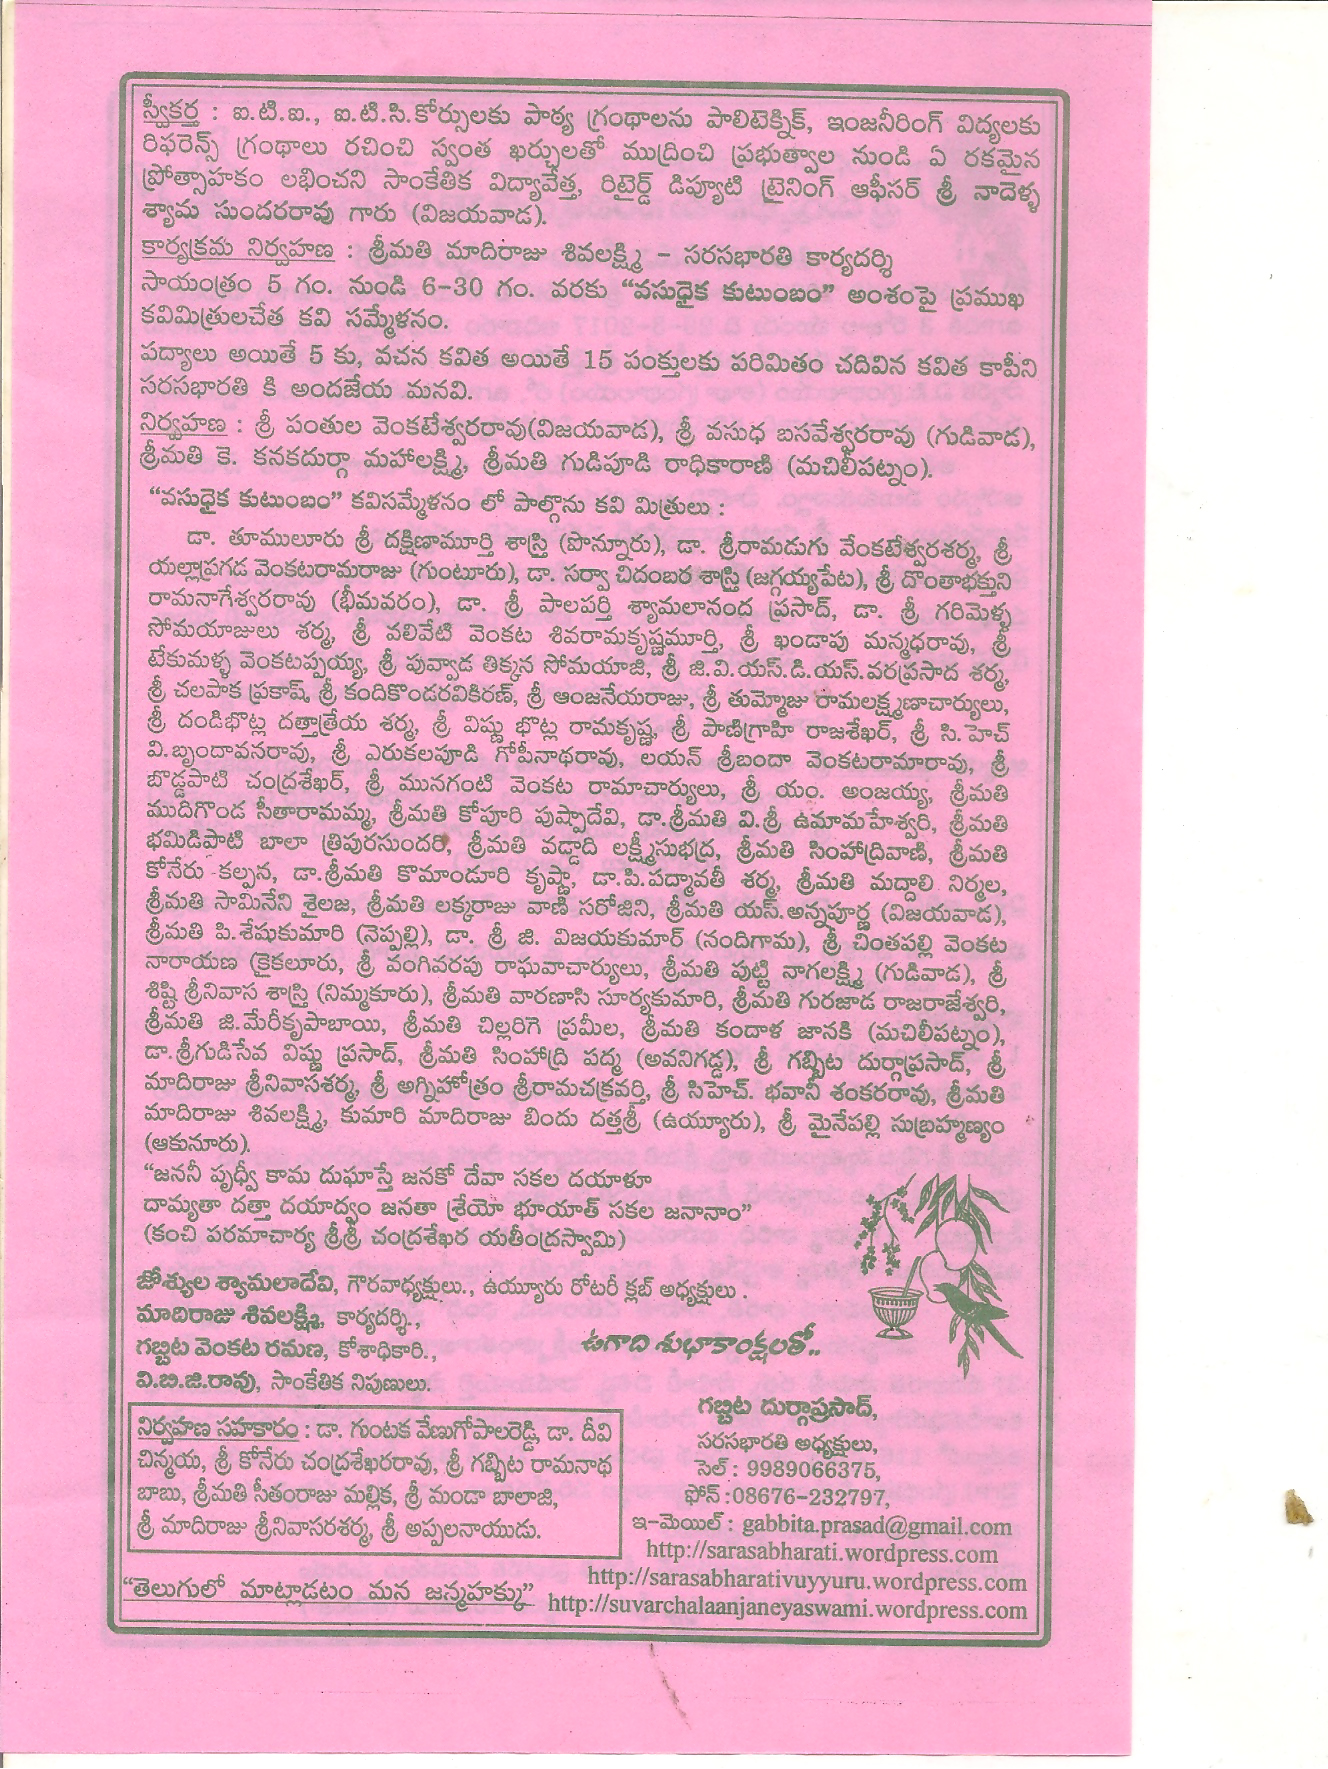 స్వీకర్త : ఐ.టి.ఐ., ఐ.టి.సి.కోర్సులకు పాఠ్య గ్రంథాలను పాలిటెక్నిక్, ఇంజనీరింగ్ విద్యలకు
రిఫరెన్స్ గ్రంథాలు రచించి స్వంత ఖర్చులతో ముద్రించి ప్రభుత్వాల నుండి ఏ రకమైన
ప్రోత్సాహకం లభించని సాంకేతిక విద్యావేత్త, రిటైర్డ్ డిప్యూటి ట్రైనింగ్ ఆఫీసర్ శ్రీ నాదెళ్ళ
శ్యామ సుందరరావు గారు (విజయవాడ).
కార్యక్రమ నిర్వహణ : శ్రీమతి మాదిరాజు శివలక్ష్మి – సరసభారతి కార్యదర్శి
సాయంత్రం 5 గం. నుండి 6-30 గం. వరకు “వసుధైక కుటుంబం” అంశంపై ప్రముఖ
కవిమిత్రులచేత కవి సమ్మేళనం.
పద్యాలు అయితే 5 కు, వచన కవిత అయితే 15 పంక్తులకు పరిమితం చదివిన కవిత కాపీని
సరసభారతి కి అందజేయ మనవి.
నిర్వహణ : శ్రీ పంతుల వెంకటేశ్వరరావు(విజయవాడ), శ్రీ వసుధ బసవేశ్వరరావు (గుడివాడ),
శ్రీమతి కె. కనకదుర్గా మహాలక్ష్మి, శ్రీమతి గుడిపూడి రాధికారాణి (మచిలీపట్నం).
“వసుధైక కుటుంబం” కవిసమ్మేళనం లో పాల్గొను కవి మిత్రులు :
డా. తూములూరు శ్రీ దక్షిణామూర్తి శాస్త్రి (పొన్నూరు), డా. శ్రీరామడుగు వేంకటేశ్వరశర్మ, శ్రీ
యల్లాప్రగడ వెంకటరామరాజు (గుంటూరు), డా. సర్వా చిదంబర శాస్త్రి (జగ్గయ్యపేట), శ్రీ దొంతాభక్తుని
రామనాగేశ్వరరావు (భీమవరం), డా. శ్రీ పాలపర్తి శ్యామలానంద ప్రసాద్, డా. శ్రీ గరిమెళ్ళ
సోమయాజులు శర్మ, శ్రీ వలివేటి వెంకట శివరామకృష్ణమూర్తి, శ్రీ ఖండాపు మన్మధరావు, శ్రీ
టేకుమళ్ళ వెంకటప్పయ్య, శ్రీ పువ్వాడ తిక్కన సోమయాజి, శ్రీ జి.వి.యస్.డి.యస్.వరప్రసాద శర్మ,
శ్రీ చలపాక ప్రకాష్, శ్రీ కందికొండరవికిరణ్, శ్రీ ఆంజనేయరాజు, శ్రీ తుమ్మోజు రామలక్ష్మణాచార్యులు,
శ్రీ దండిభొట్ల దత్తాత్రేయ శర్మ, శ్రీ విష్ణు భొట్ల రామకృష్ణ, శ్రీ పాణిగ్రాహి రాజశేఖర్, శ్రీ సి.హెచ్
వి.బృందావనరావు, శ్రీ ఎరుకలపూడి గోపీనాథరావు, లయన్ శ్రీబందా వెంకటరామారావు, శ్రీ
బొడ్డపాటి చంద్రశేఖర్, శ్రీ మునగంటి వెంకట రామాచార్యులు, శ్రీ యం. అంజయ్య, శ్రీమతి
ముదిగొండ సీతారామమ్మ, శ్రీమతి కోపూరి పుష్పాదేవి, డా.శ్రీమతి వి.శ్రీ ఉమామహేశ్వరి, శ్రీమతి
భమిడిపాటి బాలా త్రిపురసుందరి, శ్రీమతి వడ్డాది లక్ష్మీసుభద్ర, శ్రీమతి సింహాద్రివాణి, శ్రీమతి
కోనేరు కల్పన, డా.శ్రీమతి కొమాండూరి కృష్ణా, డా.పి.పద్మావతీ శర్మ, శ్రీమతి మద్దాలి నిర్మల,
శ్రీమతి సామినేని శైలజ, శ్రీమతి లక్కరాజు వాణి సరోజిని, శ్రీమతి యస్.అన్నపూర్ణ (విజయవాడ),
శ్రీమతి పి.శేషుకుమారి (నెప్పల్లి), డా. శ్రీ జి. విజయకుమార్ (నందిగామ), శ్రీ చింతపల్లి వెంకట
నారాయణ (కైకలూరు, శ్రీ వంగివరపు రాఘవాచార్యులు, శ్రీమతి పుట్టి నాగలక్ష్మి (గుడివాడ), శ్రీ
శిష్టి శ్రీనివాస శాస్త్రి (నిమ్మకూరు), శ్రీమతి వారణాసి సూర్యకుమారి, శ్రీమతి గురజాడ రాజరాజేశ్వరి,
శ్రీమతి జి.మేరీకృపాబాయి, శ్రీమతి చిల్లరిగె ప్రమీల, శ్రీమతి కందాళ జానకి (మచిలీపట్నం),
డా.శ్రీగుడిసేవ విష్ణు ప్రసాద్, శ్రీమతి సింహాద్రి పద్మ (అవనిగడ్డ), శ్రీ గబ్బిట దుర్గాప్రసాద్, శ్రీ
మాదిరాజు శ్రీనివాసశర్మ, శ్రీ అగ్నిహోత్రం శ్రీరామచక్రవర్తి, శ్రీ సిహెచ్. భవానీ శంకరరావు, శ్రీమతి
మాదిరాజు శివలక్ష్మి, కుమారి మాదిరాజు బిందు దత్తశ్రీ (ఉయ్యూరు), శ్రీ మైనేపల్లి సుబ్రహ్మణ్యం
(ఆకునూరు).
“జననీ పృథ్వీ కామ దుఘాస్తే జనకో దేవా సకల దయాళూ
దామ్యతా దత్తా దయాద్వం జనతా శ్రేయో భూయాత్ సకల జనానాం”
(కంచి పరమాచార్య శ్రీశ్రీ చంద్రశేఖర యతీంద్రస్వామి)
జోశ్యుల శ్యామలాదేవి, గౌరవాధ్యక్షులు., ఉయ్యూరు రోటరీ క్లబ్ అధ్యక్షులు .
మాదిరాజు శివలక్ష్మి, కార్యదర్శి.,
గబ్బిట వెంకట రమణ, కోశాధికారి.,
వి.బి.జి.రావు, సాంకేతిక నిపుణులు.
ఉగాది శుభాకాంక్షలతో..
గబ్బిట దుర్గాప్రసాద్,
సరసభారతి అధ్యక్షులు,
సెల్ : 9989066375,
ఫోన్ :08676-232797,
ఇ-మెయిల్ : gabbita.prasad@gmail.com
http://sarasabharati.wordpress.com
http://sarasabharativuyyuru.wordpress.com
http://suvarchalaanjaneyaswami.wordpress.com
నిర్వహణ సహకారం : డా. గుంటక వేణుగోపాలరెడ్డి, డా. దీవి
చిన్మయ, శ్రీ కోనేరు చంద్రశేఖరరావు, శ్రీ గబ్బిట రామనాథ
బాబు, శ్రీమతి సీతంరాజు మల్లిక, శ్రీ మండా బాలాజి,
శ్రీ మాదిరాజు శ్రీనివాసరశర్మ, శ్రీ అప్పలనాయుడు.
“తెలుగులో మాట్లాడటం మన జన్మహక్కు”